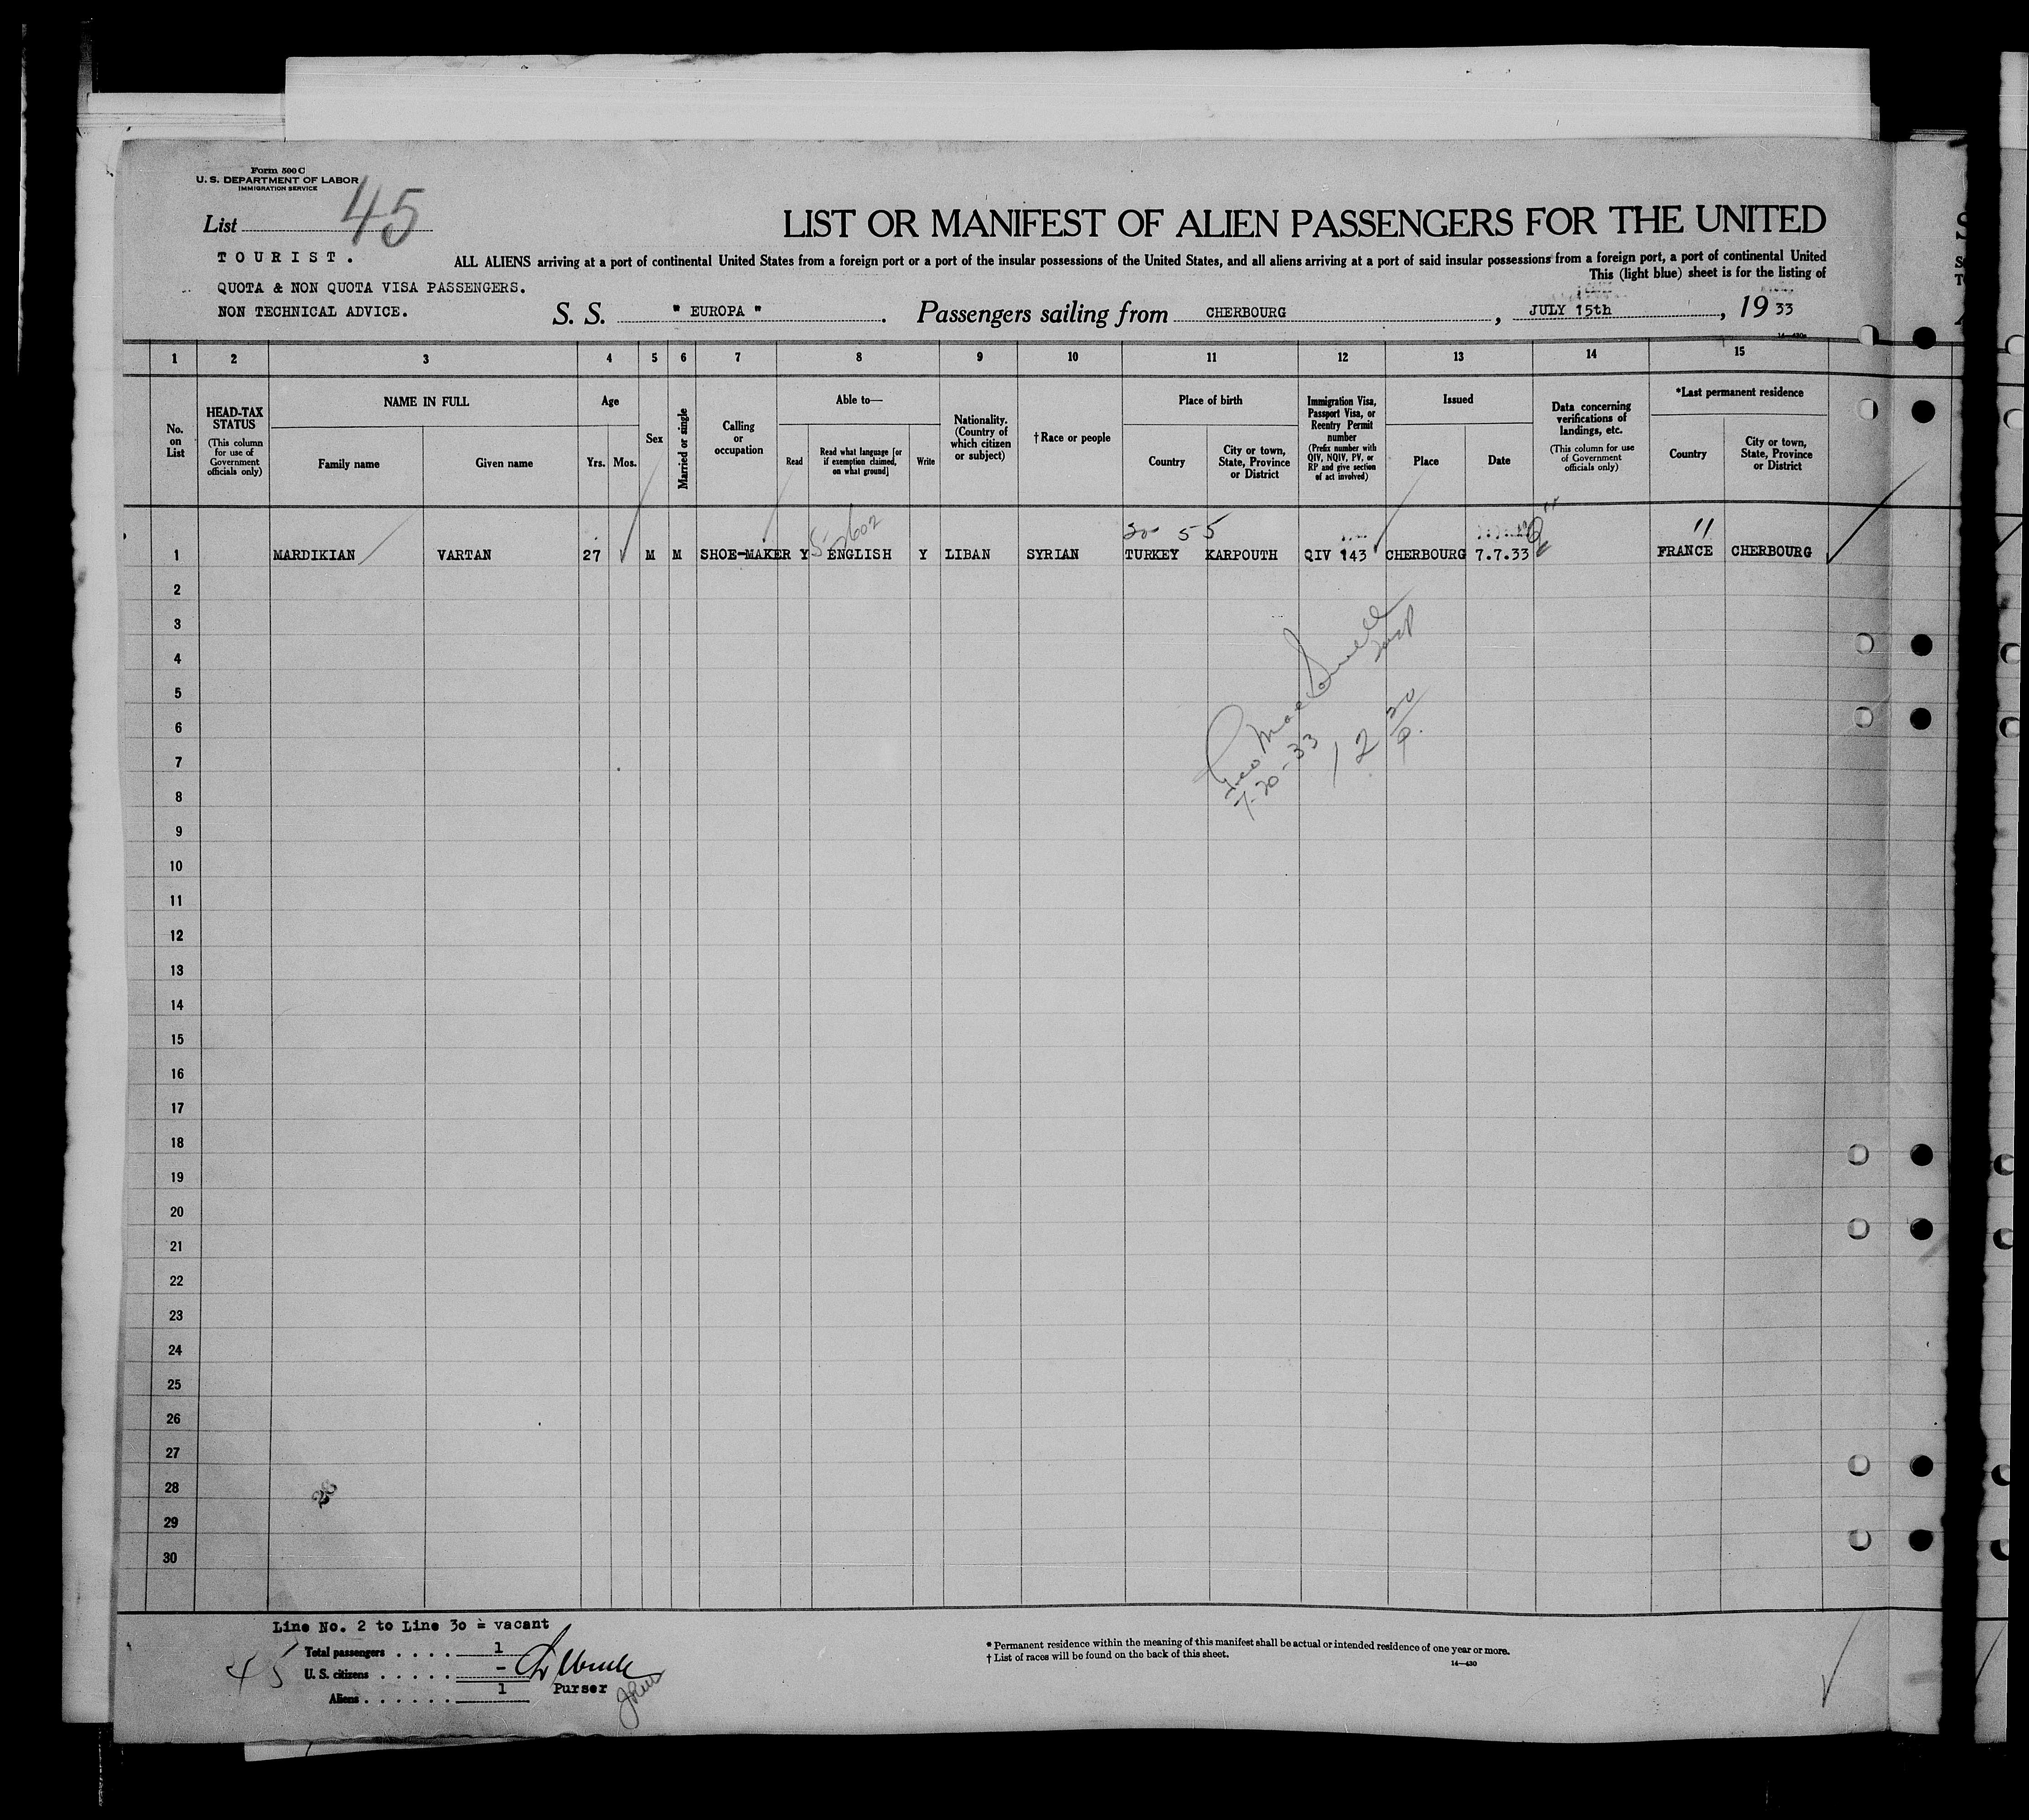 Form 500 C
U. S. DEPARTMENT OF LABOR
IMMIGRATION SERVICE
List 45
LIST OR MANIFEST OF ALIEN PASSENGERS FOR THE UNITED
TOURIST.
ALL ALIENS arriving at a port of continental United States from a foreign port or a port of the insular possessions of the United States, and all aliens arriving at a port of said insular possessions from a foreign port, a port of continental United
This (light blue) sheet is for the listing of
QUOTA & NON QUOTA VISA PASSENGERS.
NON TECHNICAL ADVICE.
S. S. " EUROPA ". Passengers sailing from CHERBOURG, JULY 15th, 19 33
1 2 3 4 5 6 7 8 9 10 11 12 13 14 15
No. on List
HEAD-TAX STATUS
(This column for use of Government officials only)
NAME IN FULL
Family name
Given name
Age
Yrs. Mos.
Sex
Married or single
Calling or occupation
Able to—
Read
Read what language [or if exemption claimed, on what ground]
Write
Nationality. (Country of which citizen or subject)
† Race or people
Place of birth
Country
City or town, State, Province or District
Immigration Visa, Passport Visa, or Reentry Permit number
(Prefix number with QIV, NQIV, PV, or RP and give section of act involved)
Issued
Place
Date
Data concerning verifications of landings, etc.
(This column for use of Government officials only)
*Last permanent residence
Country
City or town, State, Province or District
55
1 MARDIKIAN VARTAN 27 M M SHOE-MAKER Y ENGLISH Y LIBAN SYRIAN TURKEY KARPOUTH QIV 143 CHERBOURG 7.7.33 FRANCE CHERBOURG
2
3
4
5
6
7
7-20-33
12 30 P.
8
9
10
11
12
13
14
15
16
17
18
19
20
21
22
23
24
25
26
27
28
29
30
Line No. 2 to Line 30 = vacant
Total passengers . . . . 1
U. S. citizens . . . . . -
Aliens . . . . . . 1
Purser
45
* Permanent residence within the meaning of this manifest shall be actual or intended residence of one year or more.
† List of races will be found on the back of this sheet.
14—430